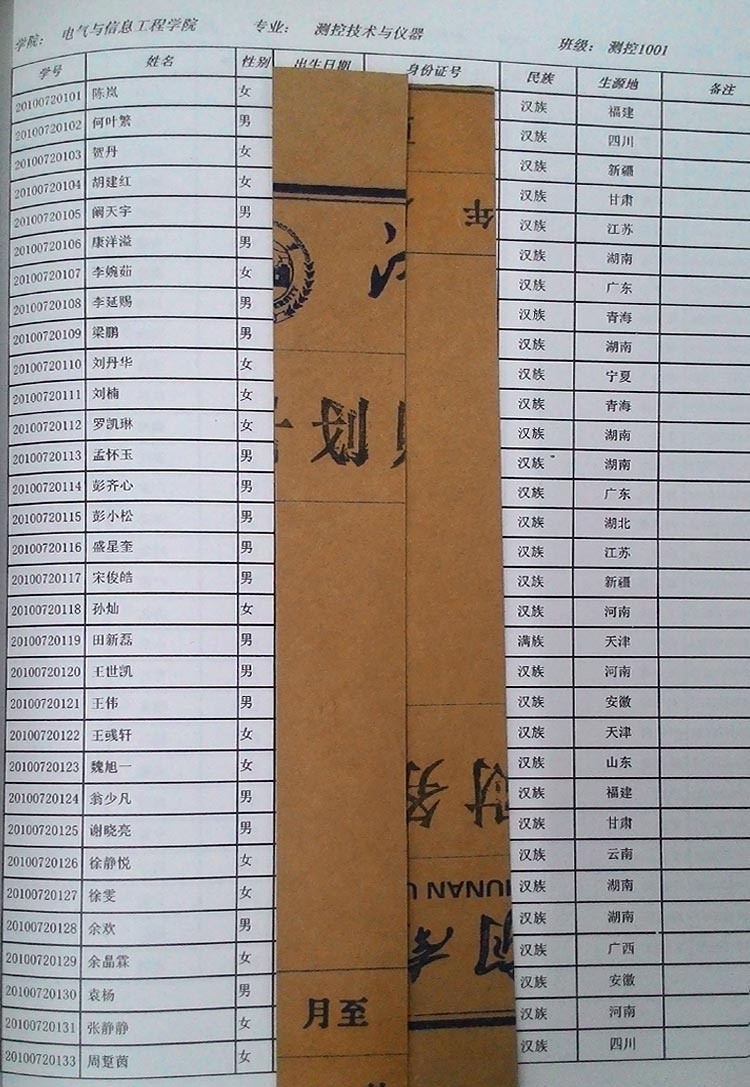 学院： 电气与信息工程学院 专业： 测控技术与仪器 班级： 测控1001
学号 姓名 性别 出生日期 身份证号 民族 生源地 备注
20100720101 陈岚 女 汉族 福建
20100720102 何叶繁 男 汉族 四川
20100720103 贺丹 女 汉族 新疆
20100720104 胡建红 女 汉族 甘肃
20100720105 阚天宇 男 汉族 江苏
20100720106 康洋溢 男 汉族 湖南
20100720107 李婉茹 女 汉族 广东
20100720108 李延赐 男 汉族 青海
20100720109 梁鹏 男 汉族 湖南
20100720110 刘丹华 女 汉族 宁夏
20100720111 刘楠 女 汉族 青海
20100720112 罗凯琳 女 汉族 湖南
20100720113 孟怀玉 男 汉族 湖南
20100720114 彭齐心 男 汉族 广东
20100720115 彭小松 男 汉族 湖北
20100720116 盛星奎 男 汉族 江苏
20100720117 宋俊皓 男 汉族 新疆
20100720118 孙灿 女 汉族 河南
20100720119 田新磊 男 满族 天津
20100720120 王世凯 男 汉族 河南
20100720121 王伟 男 汉族 安徽
20100720122 王彧轩 女 汉族 天津
20100720123 魏旭一 女 汉族 山东
20100720124 翁少凡 男 汉族 福建
20100720125 谢晓亮 男 汉族 甘肃
20100720126 徐静悦 女 汉族 云南
20100720127 徐雯 女 汉族 湖南
20100720128 余欢 男 汉族 湖南
20100720129 余晶霖 女 汉族 广西
20100720130 袁杨 男 汉族 安徽
20100720131 张静静 女 汉族 河南
20100720133 周踅茵 女 汉族 四川
年
财务
HUNAN U
月至